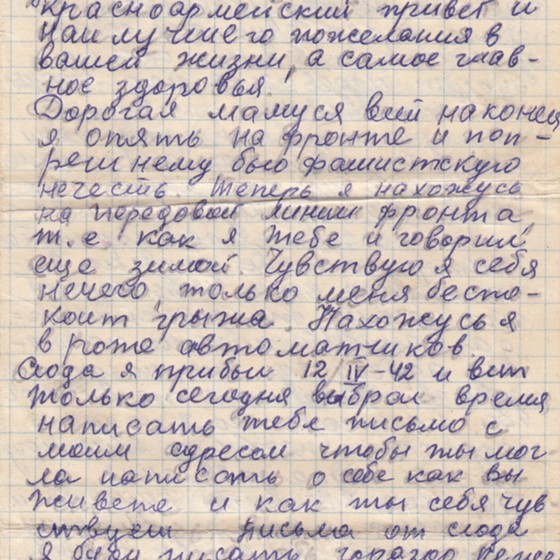 Красноармейский привет и
наилучшего пожелания в
вашей жизни, а самое глав-
ное здоровья.
Дорогая мамуся вот наконец
я опять на фронте и поп-
режнему бью фашистскую
нечесть. Теперь я нахожусь
на передовой линии фронта,
т.е как я тебе и говорил,
еще зимой. Чувствую я себя
нечего только меня беспо-
коит грыжа. Нахожусь я
в роте автоматчиков.
Сюда я прибыл 12 IV-42 и вот
только сегодня выбрал время
написать тебе письмо с
моим адресом чтобы ты мог
ла написать о себе как вы
живете и как ты себя чув
ствуеш Письма от сюда
я буду писать гораздо